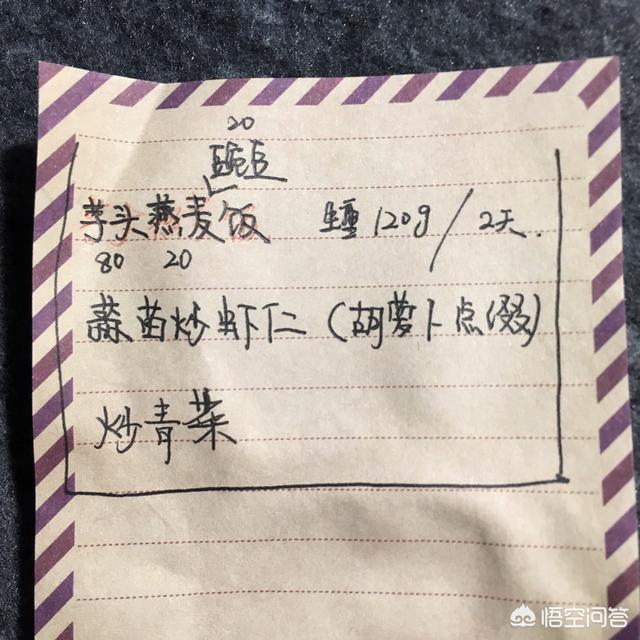 20
豌豆
芋头燕麦饭 生重120g/2天.
80 20
蒜苗炒虾仁(胡萝卜点缀)
炒青菜
悟空问答